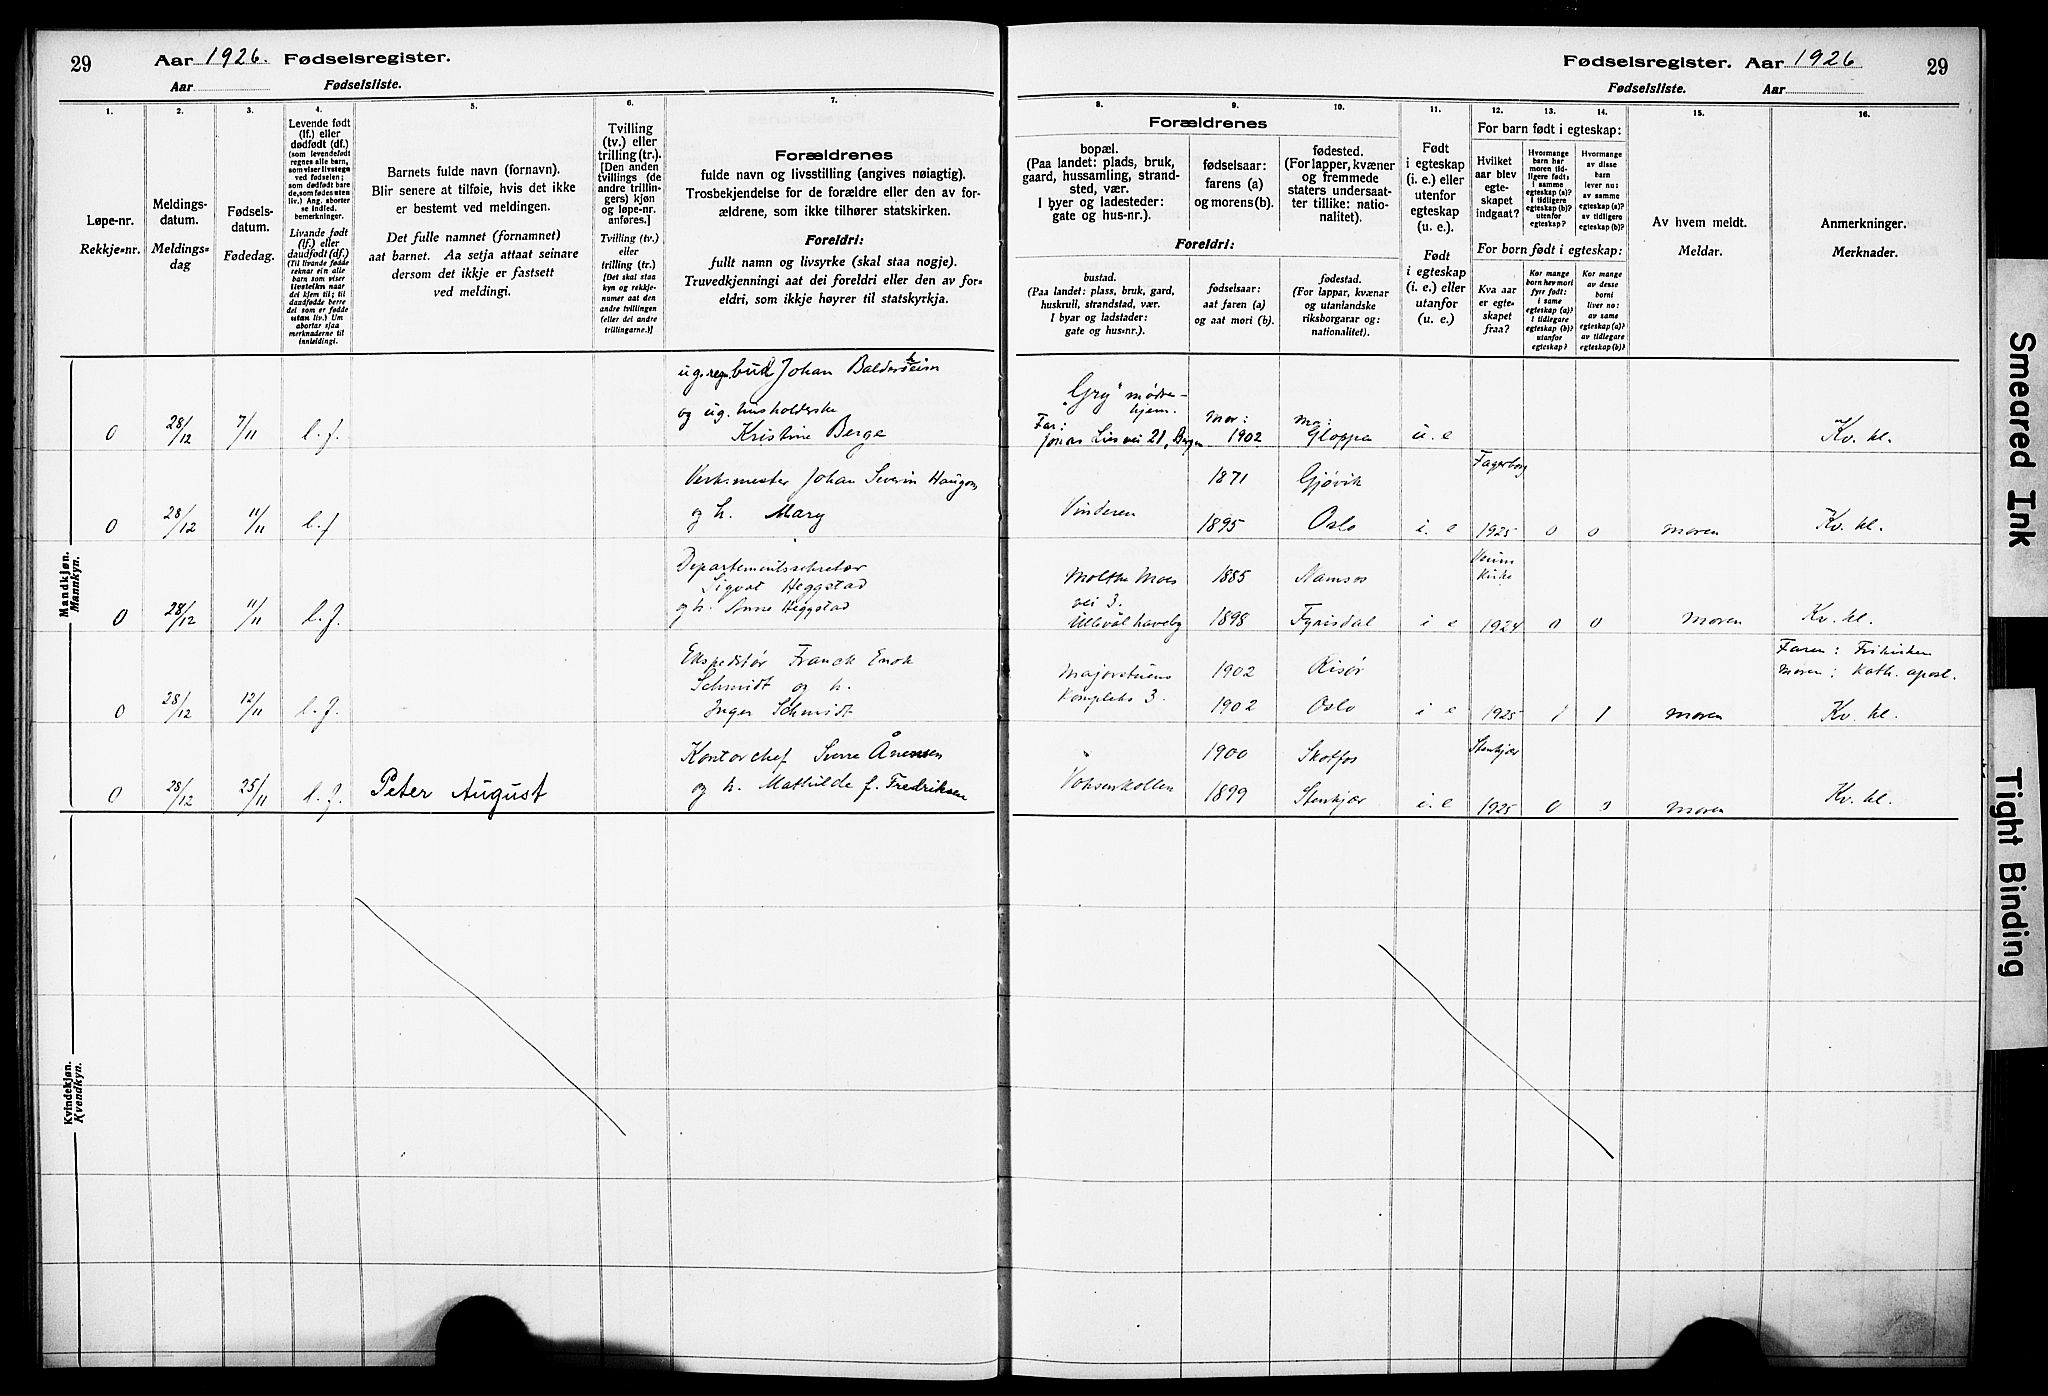 29
Aar 1926. Fødselsregister.
Aar Fødselsliste.
1.
2.
3.
4.
5.
6.
7.
Løpe-nr.
Rekkje=nr.
Meldings-
datum.
Meldings=
dag
Fødsels-
datum.
Fødedag.
Levende født
(lf.) eller
dødfødt (df.)
(som levendefødt
regnes alle barn,
som viser livstegn
ved fødselen;
som dødfødt bare
de, som fødes uten
liv.) Ang. aborter
se indled.
bemerkninger.
Livande født
(lf.) eller
daudfødt (df.)
(Til livande fødde
reknar ein alle
born som viser
livsteikn naar
dei kjem til; til
daudfødde berre
dei som er fødde
utan liv.) Um
abortar sjaa
merknaderne til
innleidingi.
Barnets fulde navn (fornavn).
Blir senere at tilføie, hvis det ikke
er bestemt ved meldingen.
Det fulle namnet (fornamnet)
aat barnet. Aa setja attaat seinare
dersom det ikkje er fastsett
ved meldingi.
Tvilling
(tv.) eller
trilling (tr.)
[Den anden
tvillings (de
andre trillin-
gers) kjøn
og løpe-nr.
anføres.]
Tvilling (tv.)
eller
trilling (tr.)
[Det skal staa
kyn og rekkje-
numer aat den
andre tvillingen
(eller dei andre
trillingarne.)]
Forældrenes
fulde navn og livsstilling (angives nøiagtig).
Trosbekjendelse for de forældre eller den av for-
ældrene, som ikke tilhører statskirken.
Foreldri:
fullt namn og livsyrke (skal staa nøgje).
Truvedkjenningi aat dei foreldri eller den av for=
eldri, som ikkje høyrer til statskyrkja.
Mandkjøn.
Mannkyn.
0 28/12 7/11 l. f. Johan Baldersheim
og ug. husholderske
Kristine Berge
0 28/12 11/11 l. f Verksmester Johan Severin
og h. Mary
0 28/12 11/11 l. f. Departementssekretær
Sigvat Heggstad
og h. Anne Heggstad
0 28/12 12/11 l. f. Ekspeditør Franck Enok
Schmidt og h.
Inger Schmidt
0 28/12 25/11 l. f. Peter August Kontorchef Sverre
og h. Mathilde f. Fredriksen
Kvindekjøn.
Kvendkyn.
Fødselsregister. Aar 1926
29
Fødselsliste. Aar
8.
9.
10.
11.
12.
13.
14.
15.
16.
Forældrenes
bopæl.
(Paa landet: plads, bruk,
gaard, hussamling, strand-
sted, vær.
I byer og ladesteder:
gate og hus-nr.).
fødselsaar:
farens (a)
og morens (b).
fødested.
(For lapper, kvæner
og fremmede
staters undersaat-
ter tillike: natio-
nalitet).
Foreldri:
bustad.
(Paa landet: plass, bruk, gard,
huskrull, strandstad, vær.
I byar og ladstader:
gate og hus=nr.).
fødselsaar:
aat faren (a)
og aat mori (b).
fødestad.
(For lappar, kvænar
og utanlandske
riksborgarar og:
nationalitet).
Født
i egteskap
(i. e.) eller
utenfor
egteskap
(u. e.).
Født
i egteskap
(i. e.) eller
utanfor
(u. e.).
For barn født i egteskap:
Hvilket
aar blev
egte-
skapet
indgaat?
Hvormange
barn har
moren tid-
ligere født:
i samme
egteskap (a)?
i tidligere
egteskap (b)?
utenfor
egteskap?
Hvormange
av disse
barn
lever nu:
av samme
egteskap (a)?
av tidligere
egteskap (b)?
For born født i egteskap:
Kva aar
er egte-
skapet
fraa?
Kor mange
born hev mori
fyrr født:
i same
egteskap (a)?
i tidlegare
egteskap (b)?
utanfor
egteskap?
Kor mange
av desse
borni
liver no:
av same
egteskap (a)?
av tidlegare
egteskap (b)?
Av hvem meldt.
Meldar.
Anmerkninger.
Merknader.
"Gry" mødre-
hjem.
Far: Jonas Lies vei 21, Bergen mor: 1902 mor: Gloppen u. e Kv. kl.
1871 Gjøvik Fagerborg
Vinderen 1895 Oslo i. e 1925 0 0 moren Kv. kl.
Moltke Moes 1885 Namsos kirke
vei 3.
Ullevål haveby 1898 Fyrisdal i e 1924 0 0 moren Kv. kl.
Faren: Frikirken
Majorstuens 1902 Risør moren: Kath. apost.
Kompleks 3. 1902 Oslo i e 1925 1 1 moren Kv. kl.
1900 Skotfos Stenkjær
Voksenkollen 1899 Stenkjær i. e 1925 0 0 moren Kv. kl.
Smeared Ink
Tight Binding